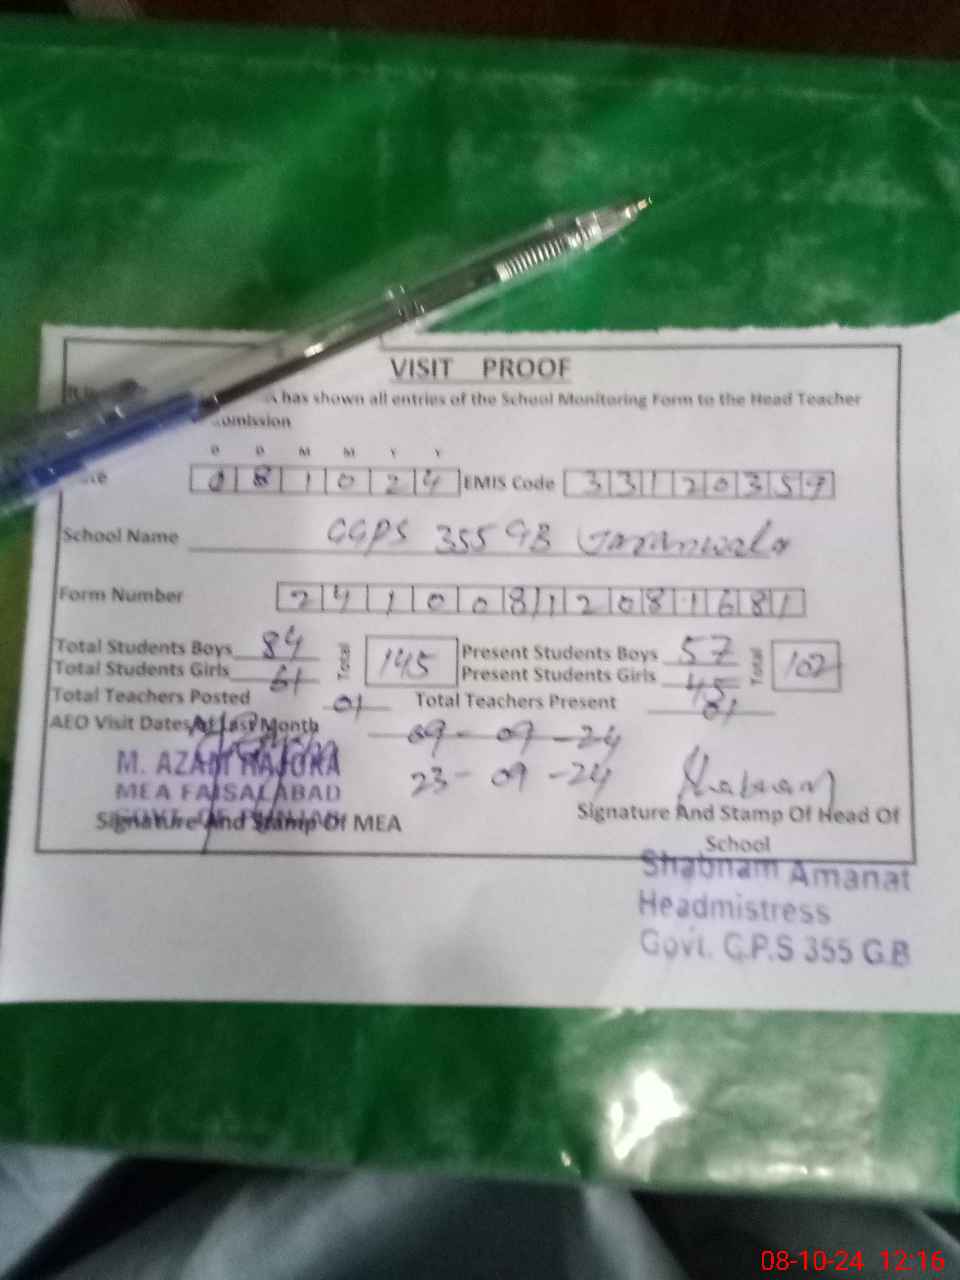 VISIT PROOF
has shown all entries of the School Monitoring Form to the Head Teacher
D D M M Y Y
081024 EMIS Code 33120359
School Name GGPS 355 GB Jaranwala
Form Number
Total Students Boys 84 Total 145 Present Students Boys 57 Total 102
Total Students Girls 61 Present Students Girls 45
Total Teachers Posted 01 Total Teachers Present 01
AEO Visit Dates Of Last Month 09-09-24
23-09-24
M. AZAM RAJOKA
MEA FAISALABAD
GOVT. OF PUNJAB
Signature And Stamp Of MEA
Shabnam
Signature And Stamp Of Head Of
School
Shabnam Amanat
Headmistress
Govt. G.P.S 355 G.B
08-10-24 12:16